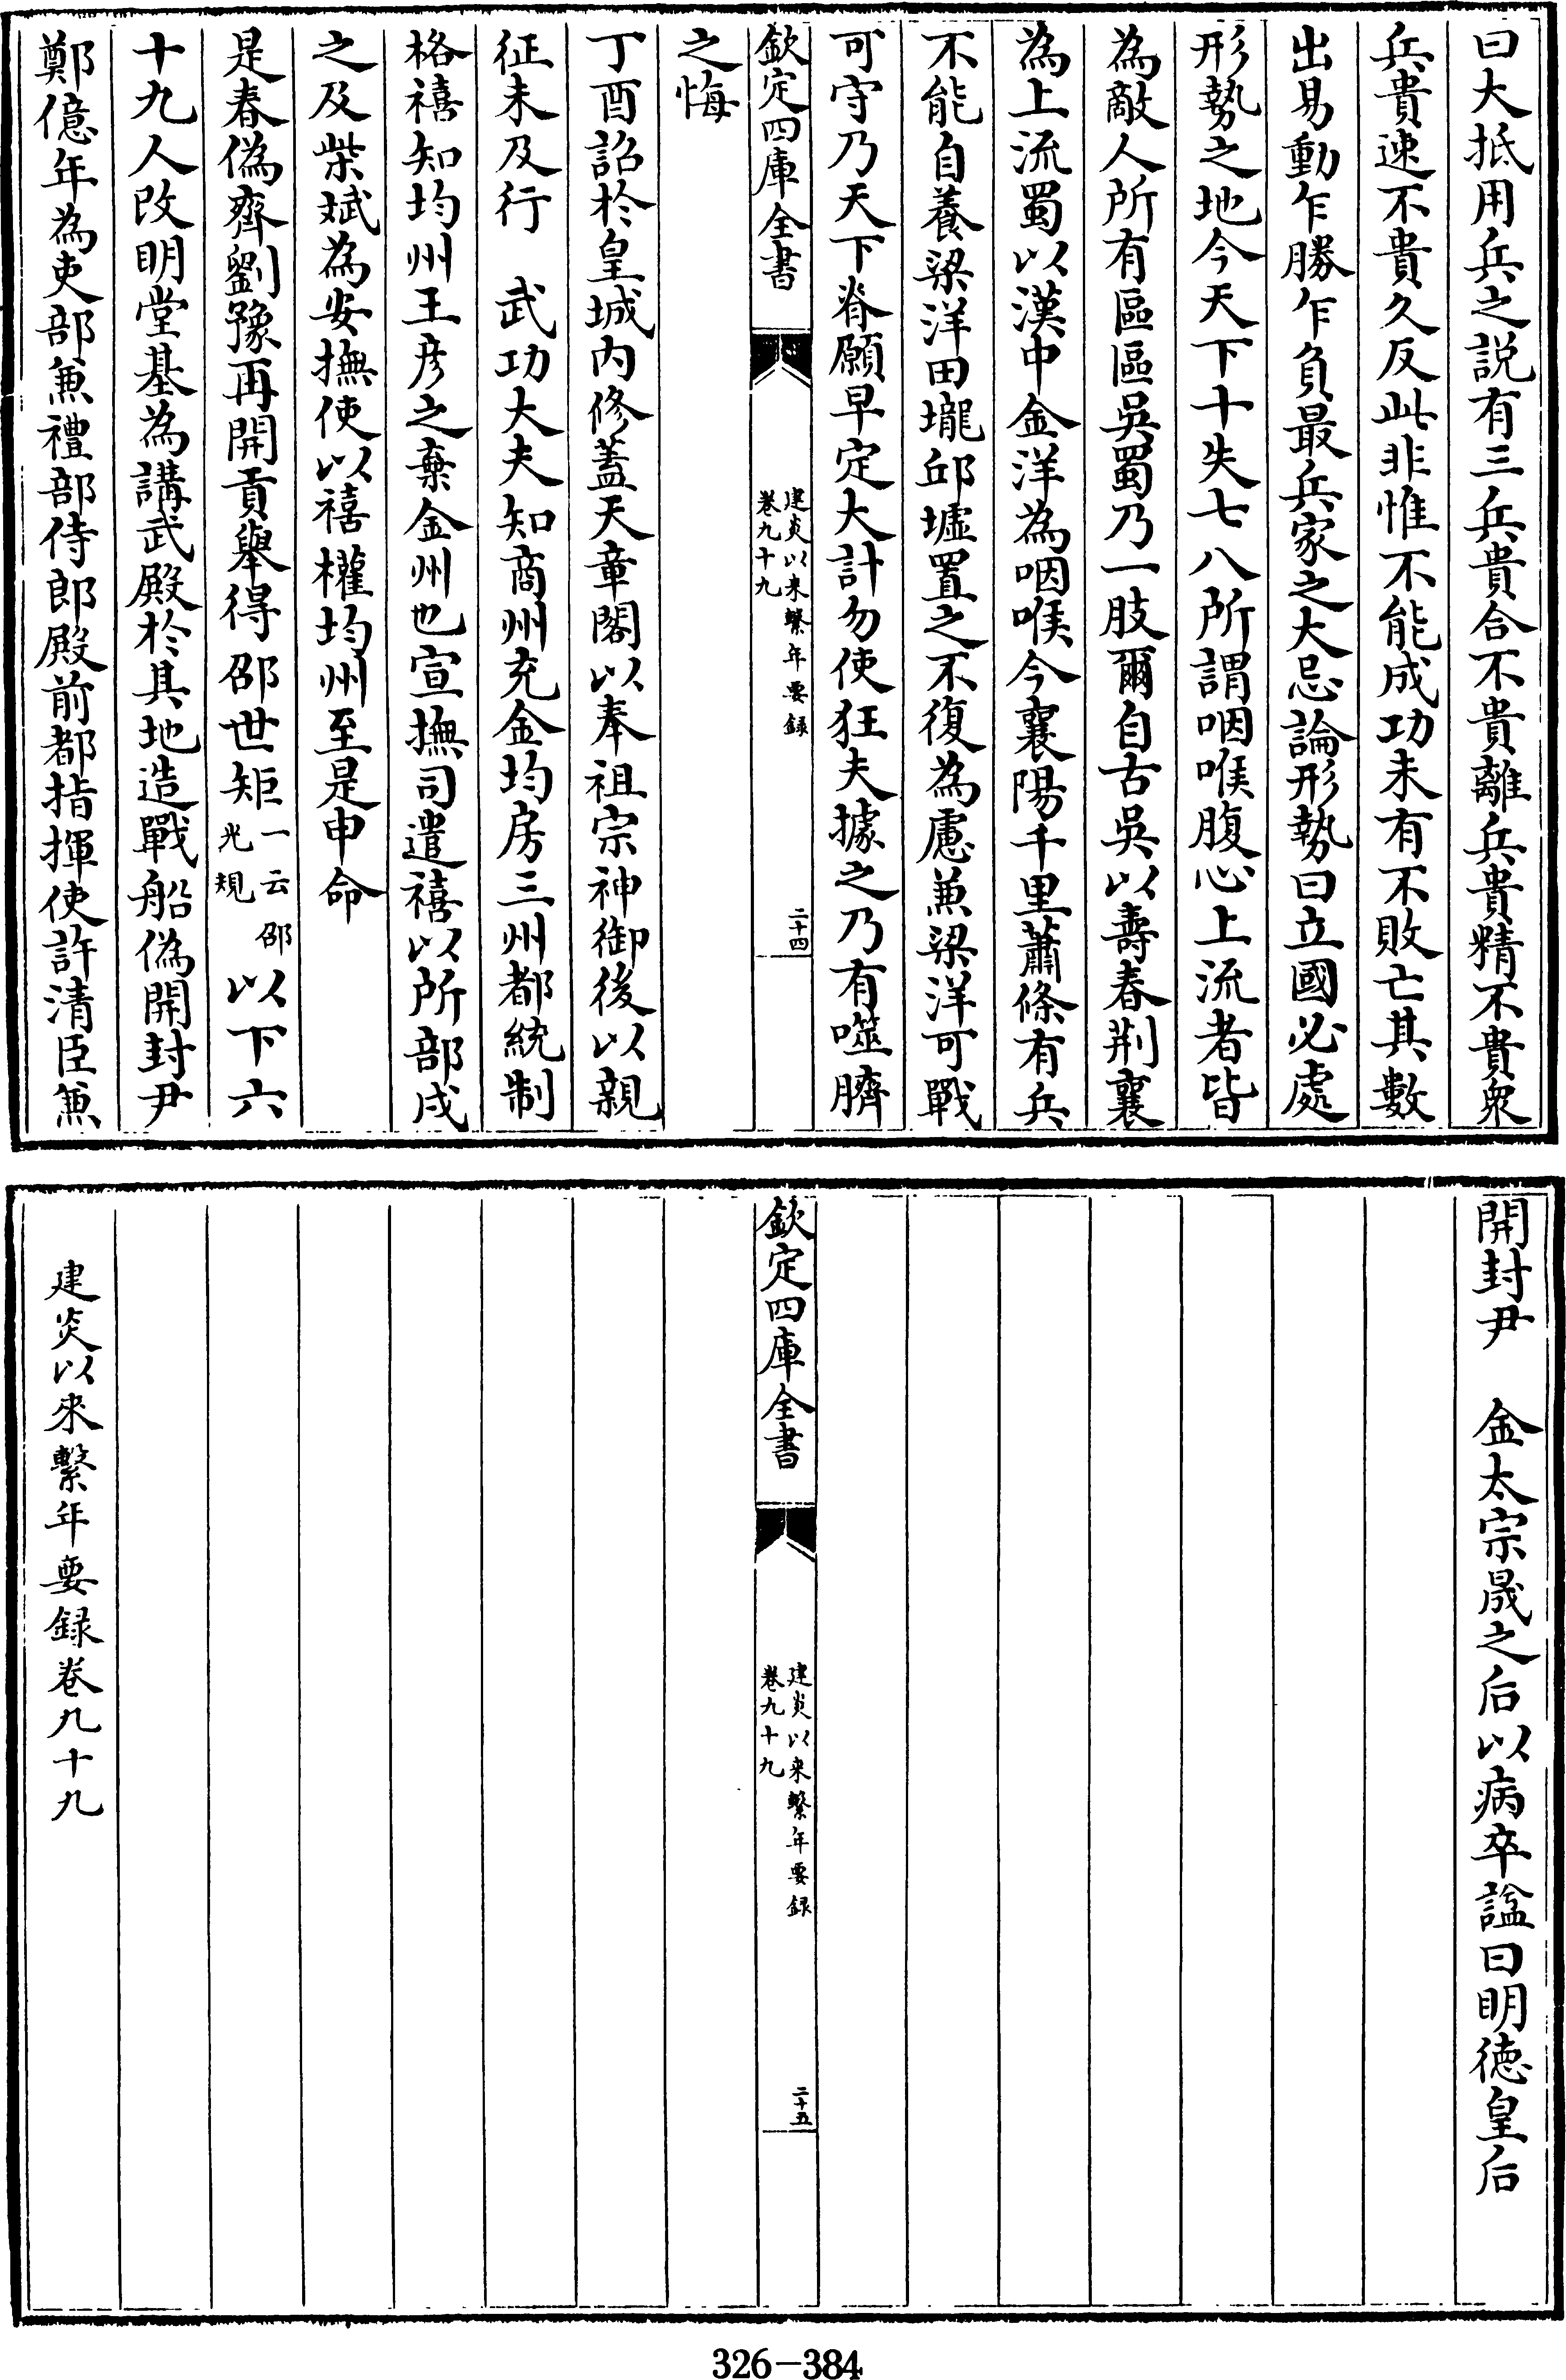 曰大抵用兵之説有三兵貴合不貴離兵貴精不貴衆
兵貴速不貴久反此非惟不能成功未有不敗亡其數
出易動乍勝乍負最兵家之大忌論形勢曰立國必處
形勢之地今天下十失七八所謂咽喉腹心上流者皆
為敵人所有區區吳蜀乃一肢爾自古吳以壽春荆襄
為上流蜀以漢中金洋為咽喉今襄陽千里蕭條有兵
不能自養梁洋田壠邱墟置之不復為慮兼梁洋可戰
可守乃天下脊願早定大計勿使狂夫據之乃有噬臍
欽定四庫全書
建炎以来繫年要録
卷九十九
二十四
之悔
丁酉詔於皇城内修葢天章閣以奉祖宗神御後以親
征未及行　武功大夫知商州充金均房三州都統制
格禧知均州王彦之棄金州也宣撫司遣禧以所部戍
之及柴斌為安撫使以禧權均州至是申命
是春偽齊劉豫再開貢舉得邵世矩一云邵光規以下六
十九人改明堂基為講武殿於其地造戰船偽開封尹
鄭億年為吏部兼禮部侍郎殿前都指揮使許清臣兼
開封尹　金太宗晟之后以病卒諡曰明徳皇后
欽定四庫全書
建炎以来繫年要録
卷九十九
二十五
建炎以來繫年要録卷九十九
326-384